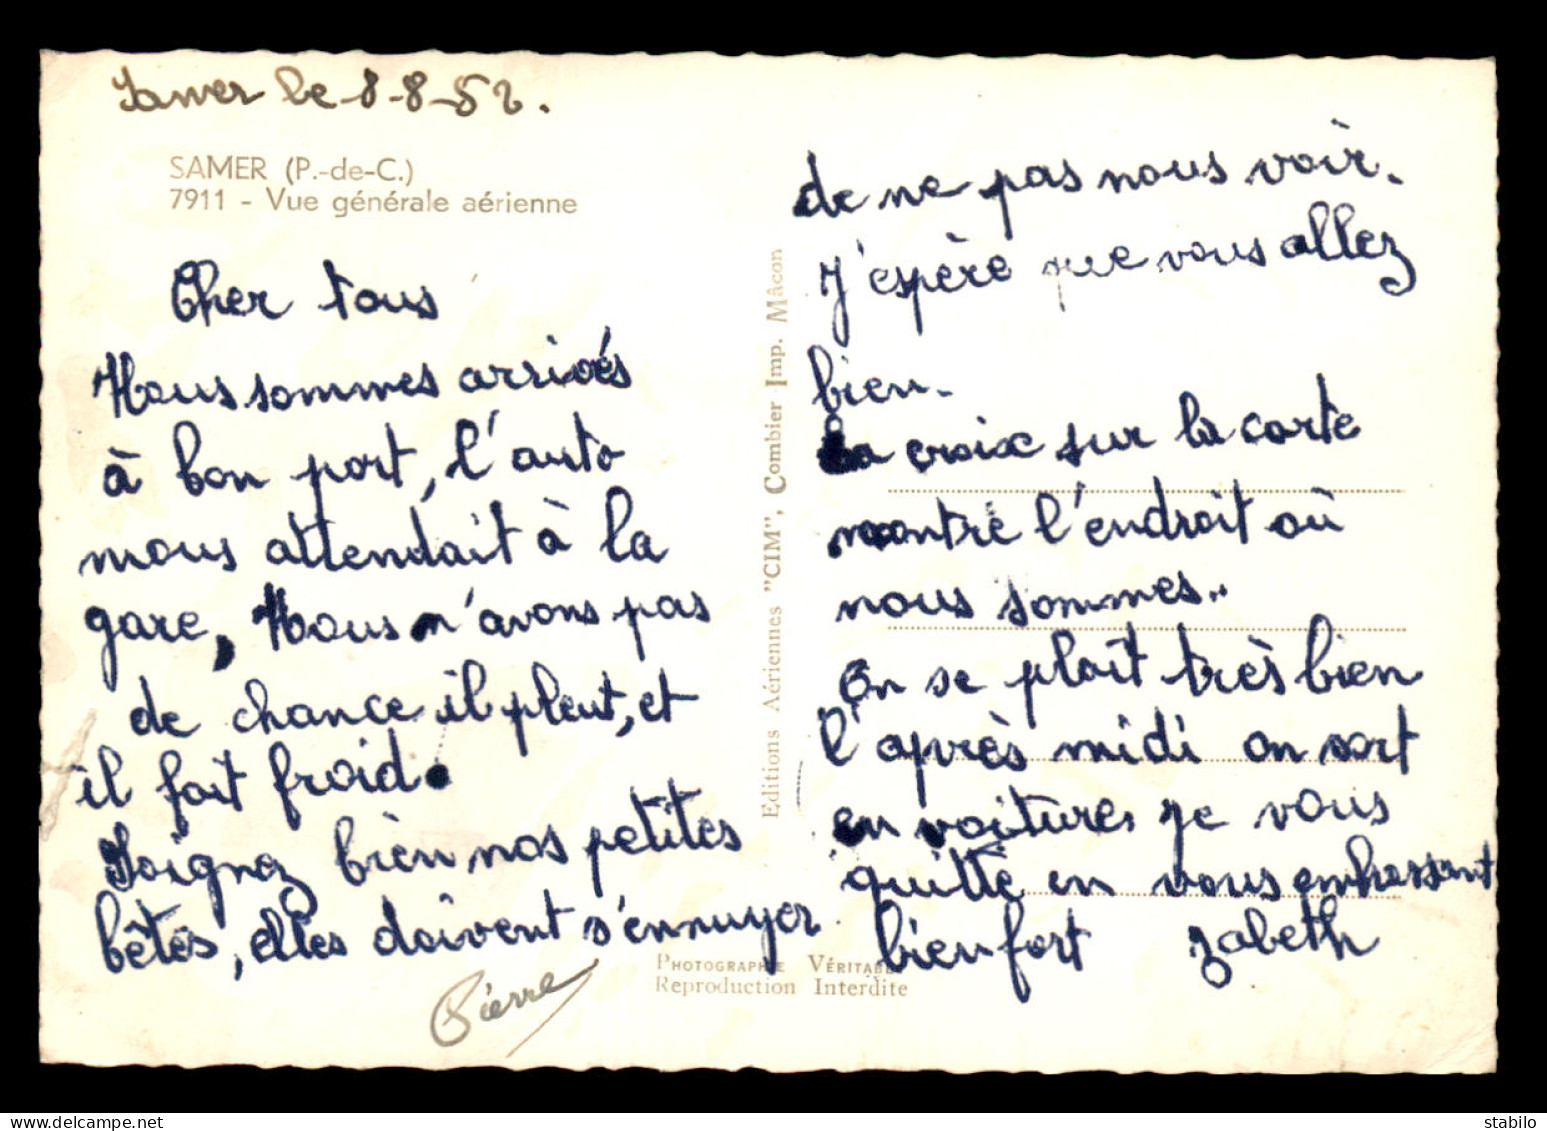 Samer le 8-8-52.
SAMER (P.-de-C.)
7911 - Vue générale aérienne
Cher tous
Nous sommes arrivés
à bon port, l'auto
nous attendait à la
gare, Nous n'avons pas
de chance il pleut, et
il fait froid.
Soignez bien nos petites
bêtes, elles doivent s'ennuyer
Pierre
Editions Aériennes "CIM", Combier Imp. Mâcon
de ne pas nous voir.
J'espère que vous allez
bien.
La croix sur la carte
montre l'endroit où
nous sommes..
On se plaît très bien
l'après midi on sort
en voiture. je vous
quitte en vous embrassant
bien fort zabeth
PHOTOGRAPHIE VÉRITABLE
Reproduction Interdite
stabilo